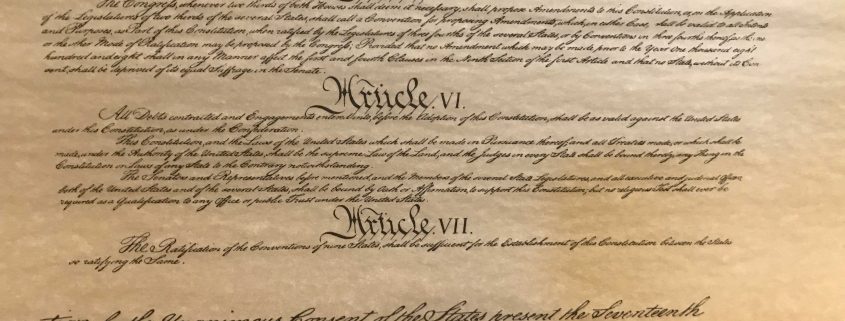 The Congress, whenever two thirds of both Houses shall deem it necessary, shall propose Amendments to this Constitution, or, on the Application
of the Legislatures of two thirds of the several States, shall call a Convention for proposing Amendments, which, in either Case, shall be valid to all Intents
and Purposes, as Part of this Constitution, when ratified by the Legislatures of three fourths of the several States, or by Conventions in three fourths thereof, as the one
or the other Mode of Ratification may be proposed by the Congress; Provided that no Amendment which may be made prior to the Year One thousand eight
hundred and eight shall in any Manner affect the first and fourth Clauses in the Ninth Section of the first Article; and that no State, without its Con
sent, shall be deprived of its equal Suffrage in the Senate.
Article. VI.
All Debts contracted and Engagements entered into, before the Adoption of this Constitution, shall be as valid against the United States
under this Constitution, as under the Confederation.
This Constitution, and the Laws of the United States which shall be made in Pursuance thereof; and all Treaties made, or which shall be
made, under the Authority of the United States, shall be the supreme Law of the Land; and the Judges in every State shall be bound thereby, any Thing in the
Constitution or Laws of any State to the Contrary notwithstanding.
The Senators and Representatives before mentioned, and the Members of the several State Legislatures, and all executive and judicial Officers,
both of the United States and of the several States, shall be bound by Oath or Affirmation, to support this Constitution; but no religious Test shall ever be
required as a Qualification to any Office or public Trust under the United States.
Article. VII.
The Ratification of the Conventions of nine States, shall be sufficient for the Establishment of this Constitution between the States
so ratifying the Same.
Unanimous Consent of the States present the Seventeenth